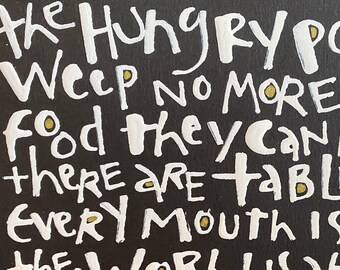 the HUNgRY po
WEEP NO MORE
food they CAN
thERE ARE tABL
EVERY MOUTH is
the WORLD is